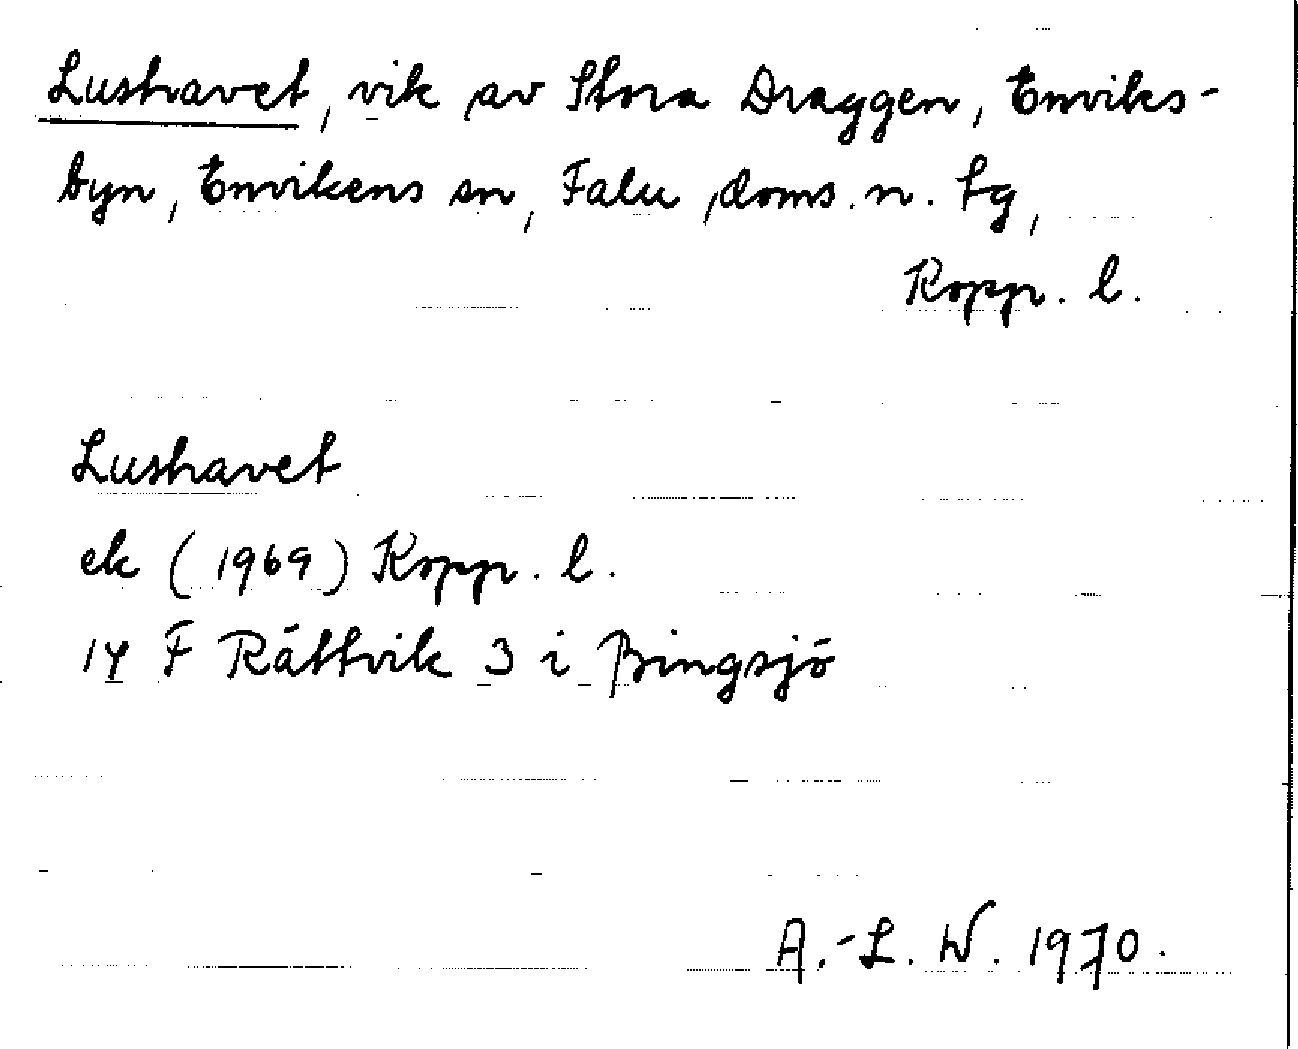 Lushavet, vik av Stora Draggen, Enviks-
byn, Envikens sn, Falu doms. n. tg,
Kopp. l.
Lushavet
ek (1969) Kopp. l.
14 F Rättvik 3 i Bingsjö
A.-L. W. 1970.